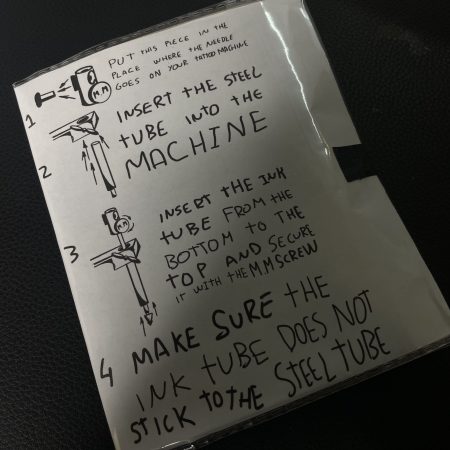 1
PUT THIS PIECE IN THE
PLACE WHERE THE NEEDLE
GOES ON YOUR TATTOO MACHINE
M.M
2
INSERT THE STEEL
TUBE INTO THE
MACHINE
3
INSERT THE INK
TUBE FROM THE
BOTTOM TO THE
TOP AND SECURE
IT WITH THE M.M SCREW
4 MAKE SURE THE
INK TUBE DOES NOT
STICK TO THE STEEL TUBE